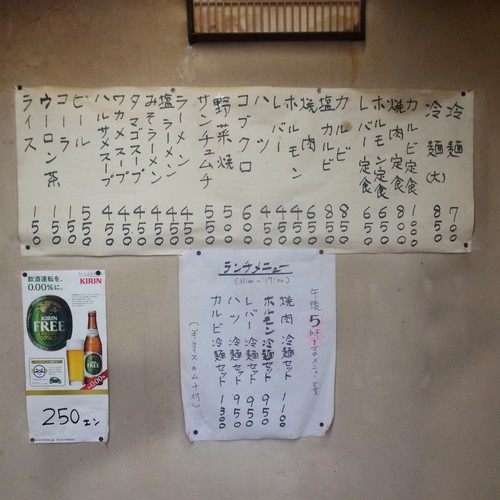 冷麺 700
冷麺(大) 850
カルビ定食 1000
焼肉定食 800
ホルモン定食 650
レバー定食 650
カルビ 850
塩カルビ 850
焼肉 650
ホルモン 450
レバー 450
ハツ 450
コブクロ 600
野菜焼 500
サンチュムチ 550
ラーメン 450
塩ラーメン 450
みそラーメン 450
タマゴスープ 450
ワカメスープ 450
ハルサメスープ 450
ビール 550
コーラ 150
ウーロン茶 150
ライス 150
ランチメニュー
(11:00～17:00)
午後5時
焼肉 冷麺セット 1100
ホルモン 冷麺セット 950
レバー 冷麺セット 950
ハツ 冷麺セット 950
カルビ 冷麺セット 1300
飲酒運転を、
0.00%に。
KIRIN
KIRIN
FREE
0.00%
250エン